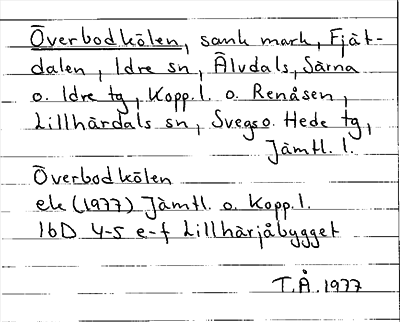 Överbodkölen, sank mark, Fjät-
dalen, Idre sn, Älvdals, Särna
o. Idre tg, Kopp. l. o. Renåsen,
Lillhärdals sn, Svegs o. Hede tg,
Jämtl. l.
Överbodkölen
ek (1977) Jämtl. o. Kopp. l.
16D 4-5 e-f Lillhärjåbygget
T.Å. 1977